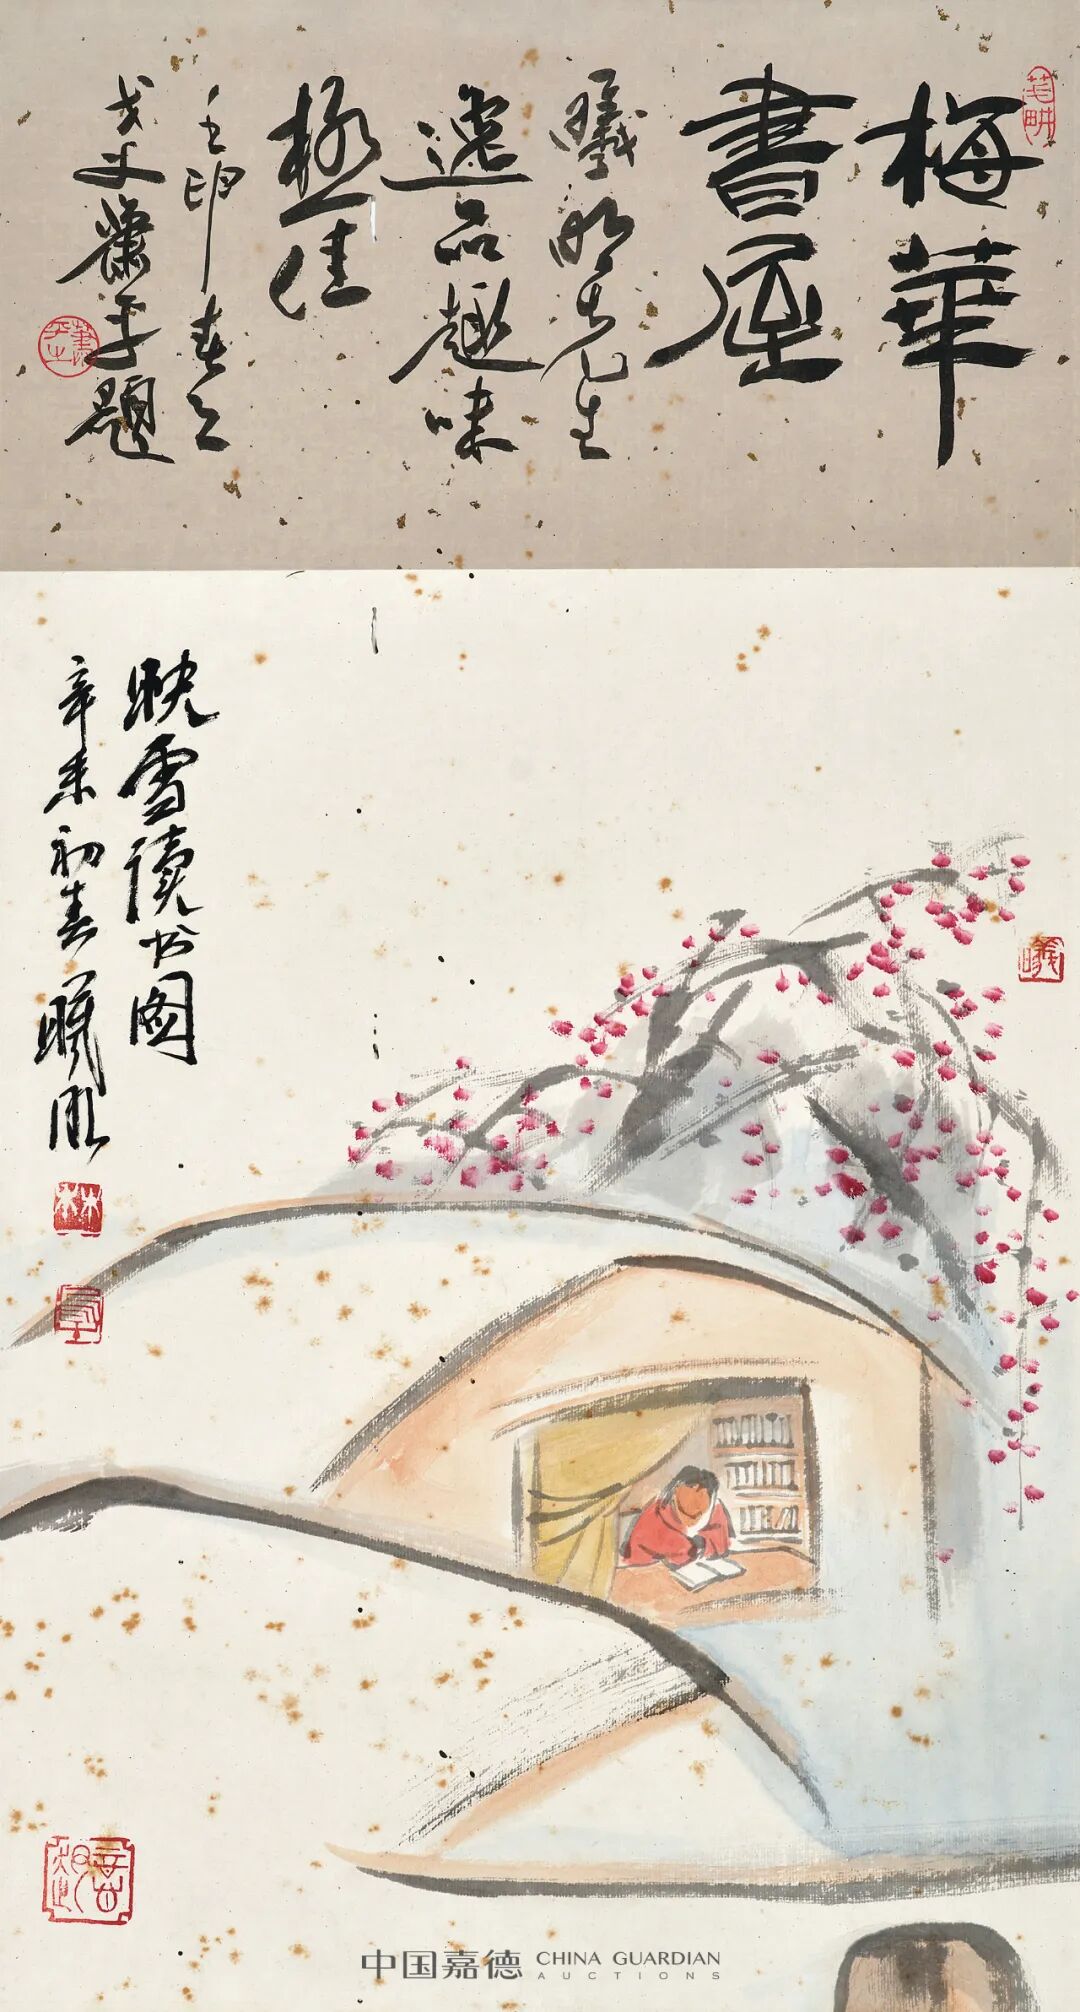 梅華
書屋
曦明先生
逸品趣味
極佳
壬申春
戈父蕭平題
映雪讀书圖
辛未初春曦明
曦
林
中国嘉德 CHINA GUARDIAN
AUCTIONS